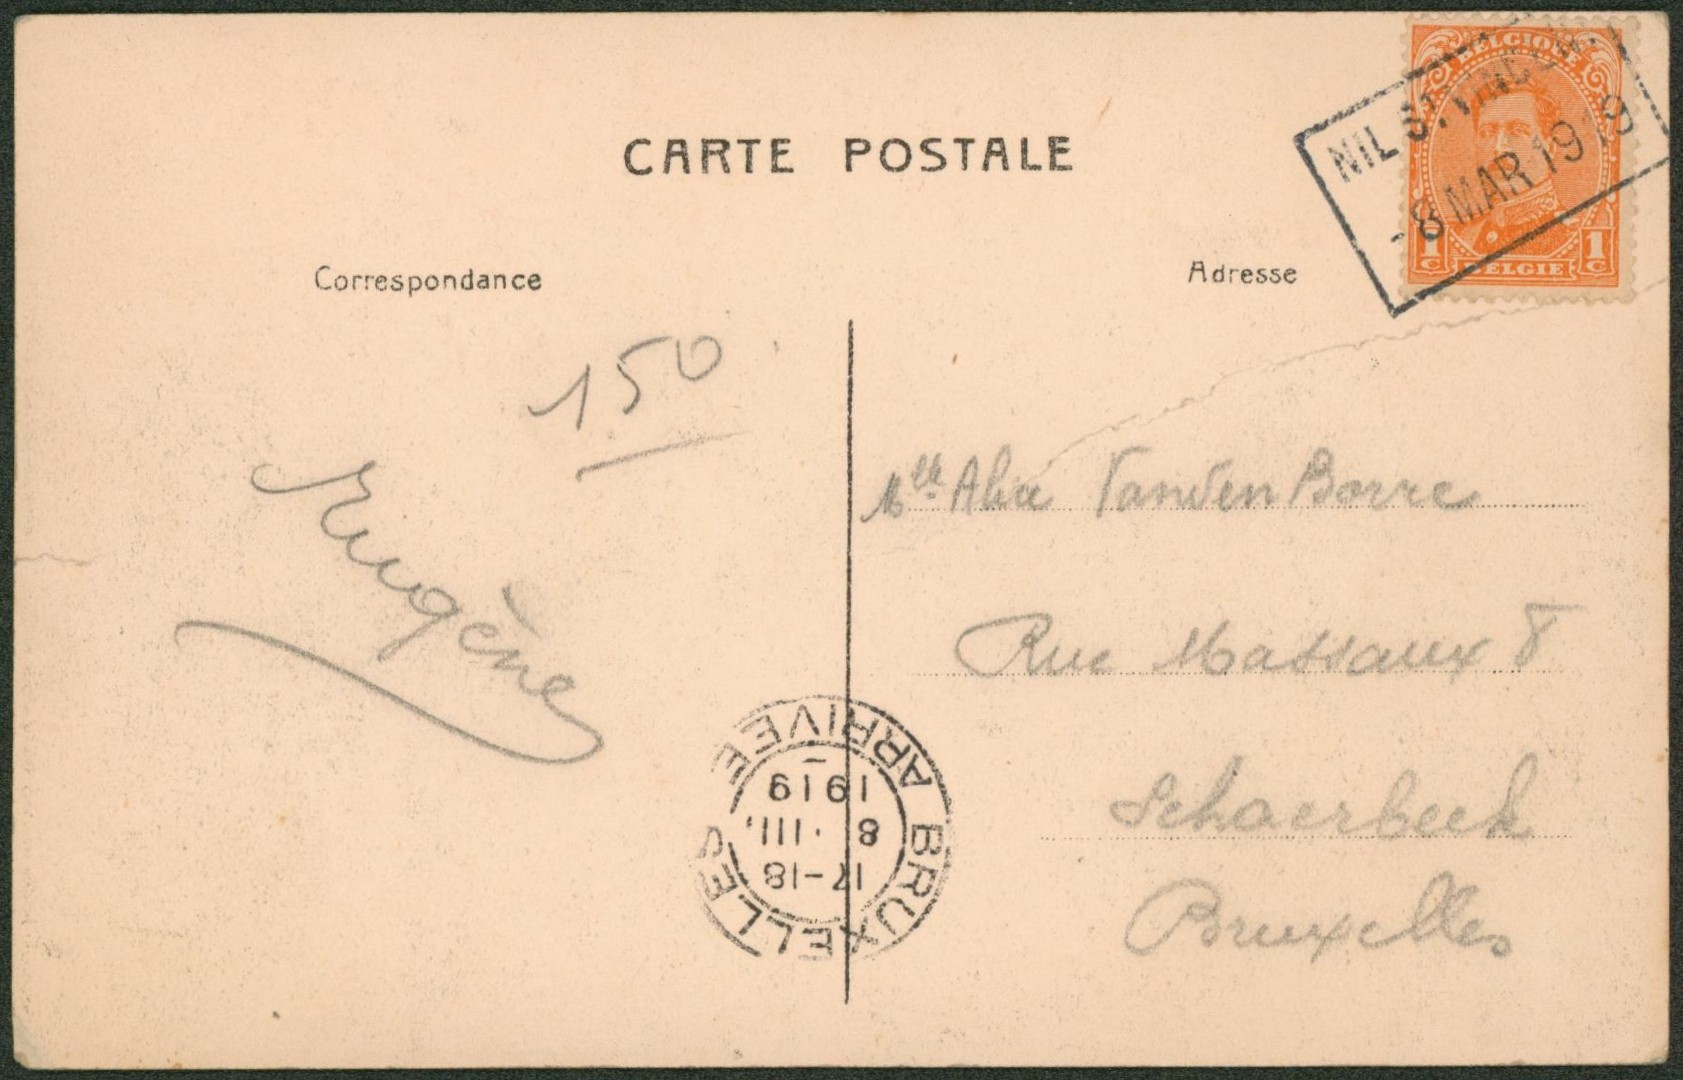 CARTE POSTALE
BELGIQUE
NIL ST VINCENT
-8 MAR 1919
1 C 1 C
BELGIE
Correspondance
Adresse
150
Eugène
Melle Alice Vanden Borre
Rue Massaux 8
Schaerbeek
Bruxelles
BRUXELLES ARRIVEE
17-18
8 ·III.
1919